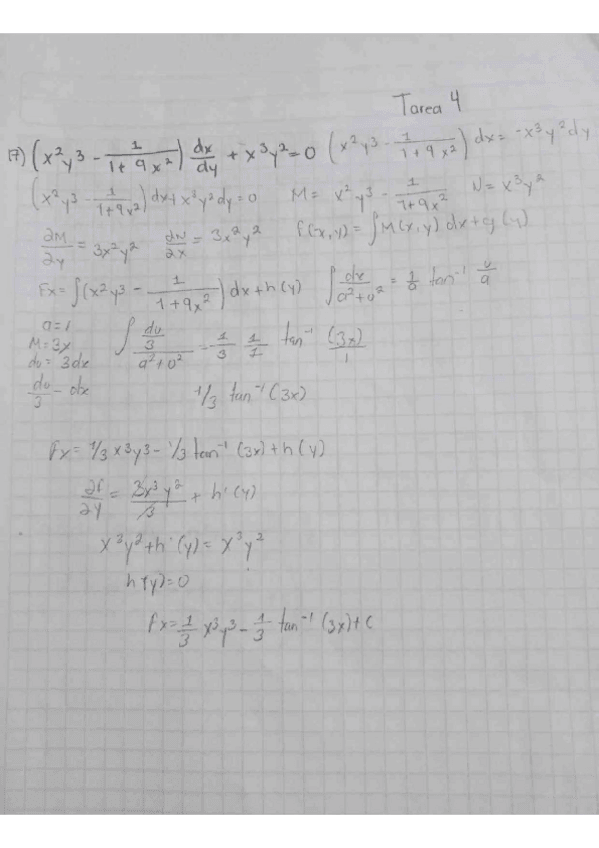 Tarea 4
17) (x²y³ - 1/(1+9x²)) dx/dy + x³y² = 0 (x²y³ - 1/(1+9x²)) dx = -x³y² dy
(x²y³ - 1/(1+9x²)) dx + x³y² dy = 0 M = x²y³ - 1/(1+9x²) N = x³y²
∂M/∂y = 3x²y² ∂N/∂x = 3x²y² f(x,y) = ∫M(x,y) dx + g(y)
Fx = ∫(x²y³ - 1/(1+9x²)) dx + h(y) ∫ dx/(a²+u²) = 1/a tan⁻¹ u/a
a = 1
M = 3x
du = 3dx
du/3 = dx
∫ (du/3)/(a²+u²) = 1/3 1/1 tan⁻¹ (3x)/1
1/3 tan⁻¹ (3x)
Fx = 1/3 x³y³ - 1/3 tan⁻¹ (3x) + h(y)
∂f/∂y = 3x³y²/3 + h'(y)
x³y² + h'(y) = x³y²
h'(y) = 0
Fx = 1/3 x³y³ - 1/3 tan⁻¹ (3x) + C